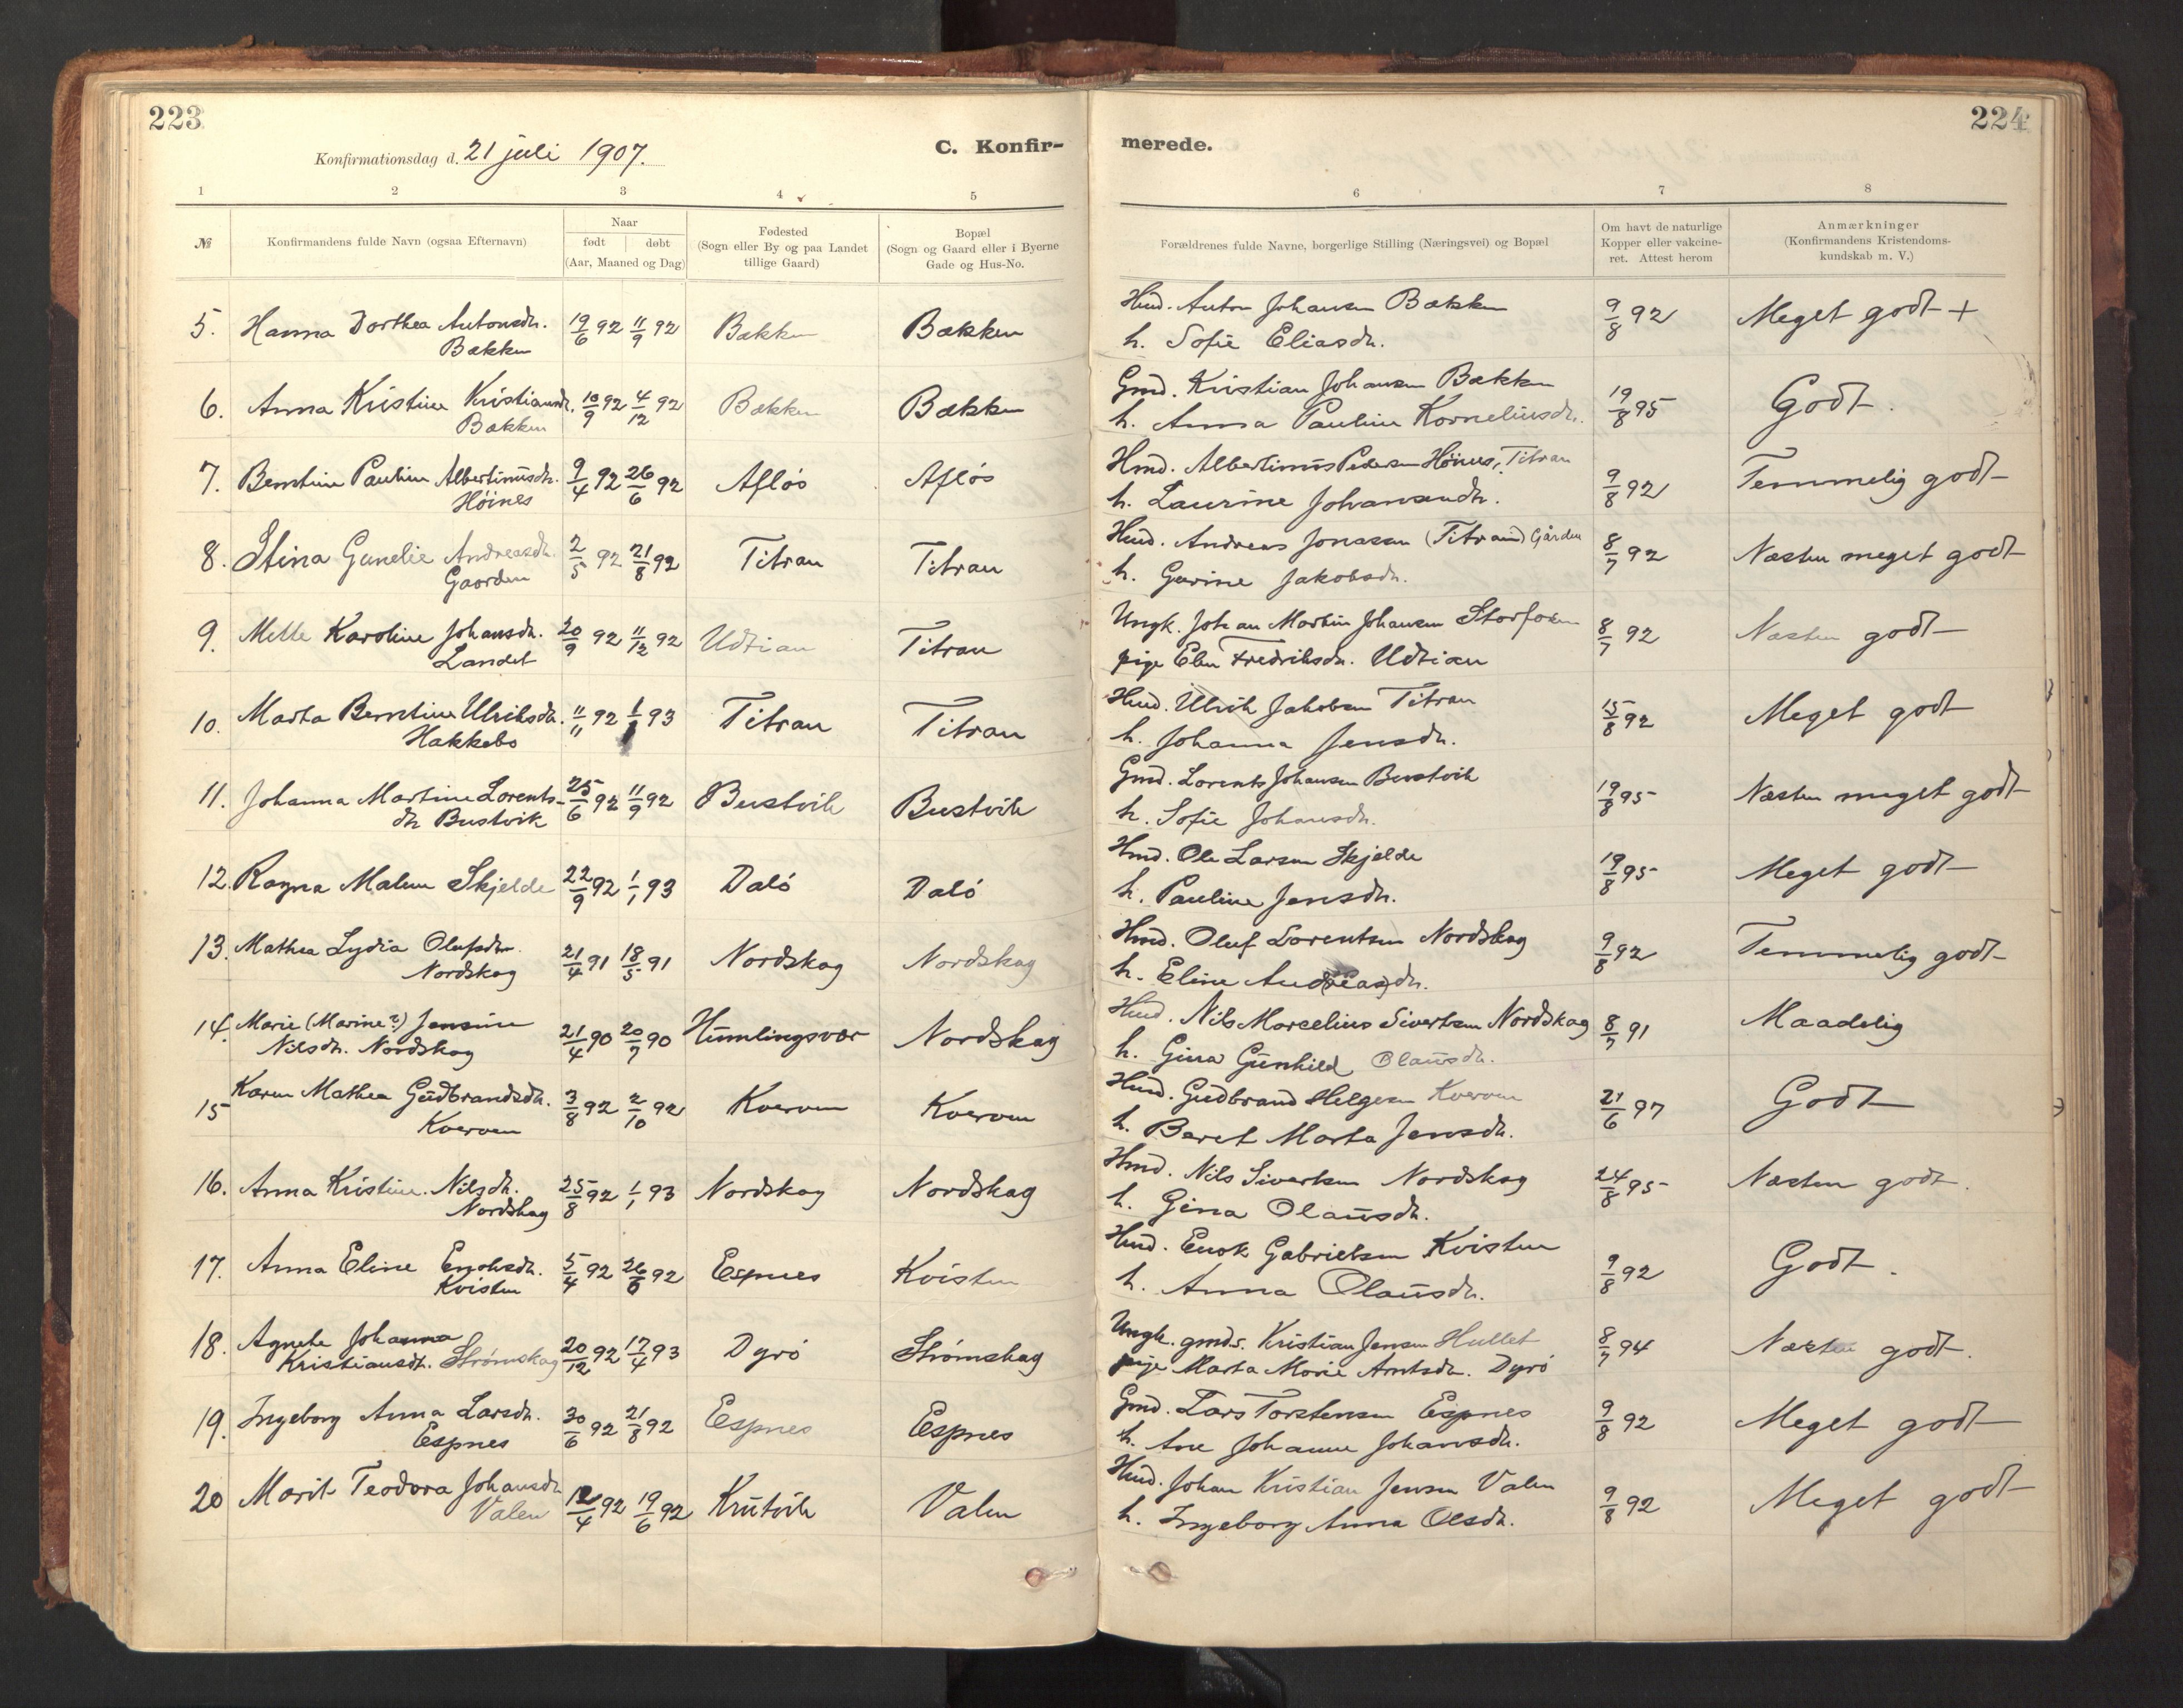 223
224
Konfirmationsdag d. 21 juli 1907.
C. Konfir-
merede.
1 2 3 4 5 6 7 8
№
Konfirmandens fulde Navn (ogsaa Efternavn)
Naar
født døbt
(Aar, Maaned og Dag)
Fødested
(Sogn eller By og paa Landet
tillige Gaard)
Bopæl
(Sogn og Gaard eller i Byerne
Gade og Hus-No.
Forældrenes fulde Navne, borgerlige Stilling (Næringsvei) og Bopæl
Om havt de naturlige
Kopper eller vakcine-
ret. Attest herom
Anmærkninger
(Konfirmandens Kristendoms-
kundskab m. V.)
5. Hanna Dorthea Antonsdtr. 19/6 92 11/9 92 Bækken Bækken
Bækken
Hmd. Anton Johansen Bækken 9/8 92 Meget godt +
h. Sofie Eliasdtr.
6. Anna Kristine Kristiansdtr. 10/9 92 4/12 92 Bækken Bækken
Bækken
Gmd. Kristian Johansen Bækken 19/8 95 Godt.
h. Anna Pauline Korneliusdtr.
7. Berntine Pauline Albertinusdtr. 9/4 92 26/6 92 Afløs Afløs
Høines
Hmd. Albertinus Pedersen Høines, Titran 9/8 92 Temmelig godt
h. Laurine Johansendtr.
8. Stina Gunelie Andreasdtr. 2/5 92 21/8 92 Titran Titran
Gaarden
Hmd. Andreas Jonassen (Titran) Gården 8/7 92 Næsten meget godt
h. Gurine Jakobsdtr.
9. Mette Karoline Johansdtr. 20/9 92 11/12 92 Udtian Titran
Landet
Ungk. Johan Martin Johansen Storfosen 8/7 92 Næsten godt
pige Elen Fredriksdtr. Udtian
10. Marta Berntine Ulriksdtr. 11/11 92 1/1 93 Titran Titran
Hakkebo
Hmd. Ulrik Jakobsen Titran 15/8 92 Meget godt
h. Johanna Jensdtr.
11. Johanna Martine Lorents- 25/6 92 11/9 92 Bustvik Bustvik
dtr Bustvik
Gmd. Lorents Johansen Bustvik 19/8 95 Næsten meget godt
h. Sofie Johansdtr.
12. Ragna Malene Skjelde 22/9 92 1/1 93 Dalø Dalø
Hmd. Ole Larsen Skjelde 19/8 95 Meget godt
h. Pauline Jensdtr.
13. Mathea Lydia Olufsdtr. 21/4 91 18/5 91 Nordskag Nordskag
Nordskag
Hmd. Oluf Lorentsen Nordskag 9/8 92 Temmelig godt
h. Eline Andreasdtr.
14. Marie (Marine?) Jensine 21/4 90 20/7 90 Humlingsvær Nordskag
Nilsdtr. Nordskag
Hmd. Nils Marselius Sivertsen Nordskag 8/7 91 Maadelig
h. Gina Gunhild Olausdtr.
15 Karen Mathea Gudbrandsdtr. 3/8 92 2/10 92 Kverven Kverven
Kverven
Hmd. Gudbrand Helgesen Kverven 21/6 97 Godt
h. Beret Marta Jensdtr.
16. Anna Kristine Nilsdtr. 25/8 92 1/1 93 Nordskag Nordskag
Nordskag
Hmd. Nils Sivertsen Nordskag 24/8 95 Næsten godt.
h. Gina Olausdtr.
17. Anna Eline Enoksdtr. 5/4 92 26/6 92 Espnes Kvisten
Kvisten
Hmd. Enok Gabrielsen Kvisten 9/8 92 Godt.
h. Anna Olausdtr.
18. Agnete Johanna 20/12 92 17/4 93 Dyrø Strømskag
Kristiansdtr. Strømskag
Ungk. gmds. Kristian Jensen Hullet 8/7 94 Næsten godt.
pige Marta Marie Arntsdtr. Dyrø
19. Ingeborg Anna Larsdtr. 30/6 92 21/8 92 Espnes Espnes
Espnes
Gmd. Lars Torstensen Espnes 9/8 92 Meget godt
h. Ane Johanna Johansdtr.
20 Marit Teodora Johansdtr 12/4 92 19/6 92 Krutvik Valen
Valen
Hmd. Johan Kristian Jensen Valen 9/8 92 Meget godt
h. Ingeborg Anna Olsdtr.